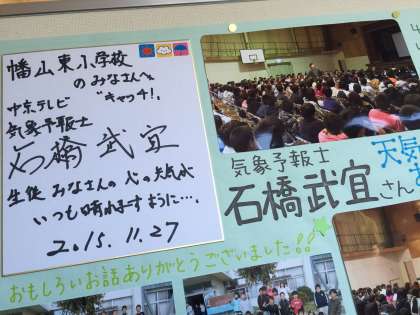 幡山東小学校
のみなさんへ
中京テレビ
"キャッチ!"
気象予報士
石橋 武宜
生徒みなさんの心の天気が
いつも晴れますように…。
2015.11.27
気象予報士
石橋武宜さん
天気
おもしろいお話ありがとうございました!!